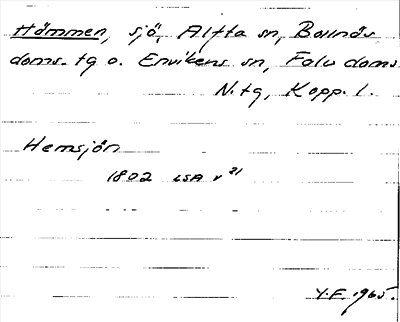 Hämmen, sjö, Alfta sn, Bollnäs
doms. tg o. Envikens sn, Falu doms.
N. tg, Kopp. l.
Hemsjön
1802 LSA v 21
Y.F. 1965.